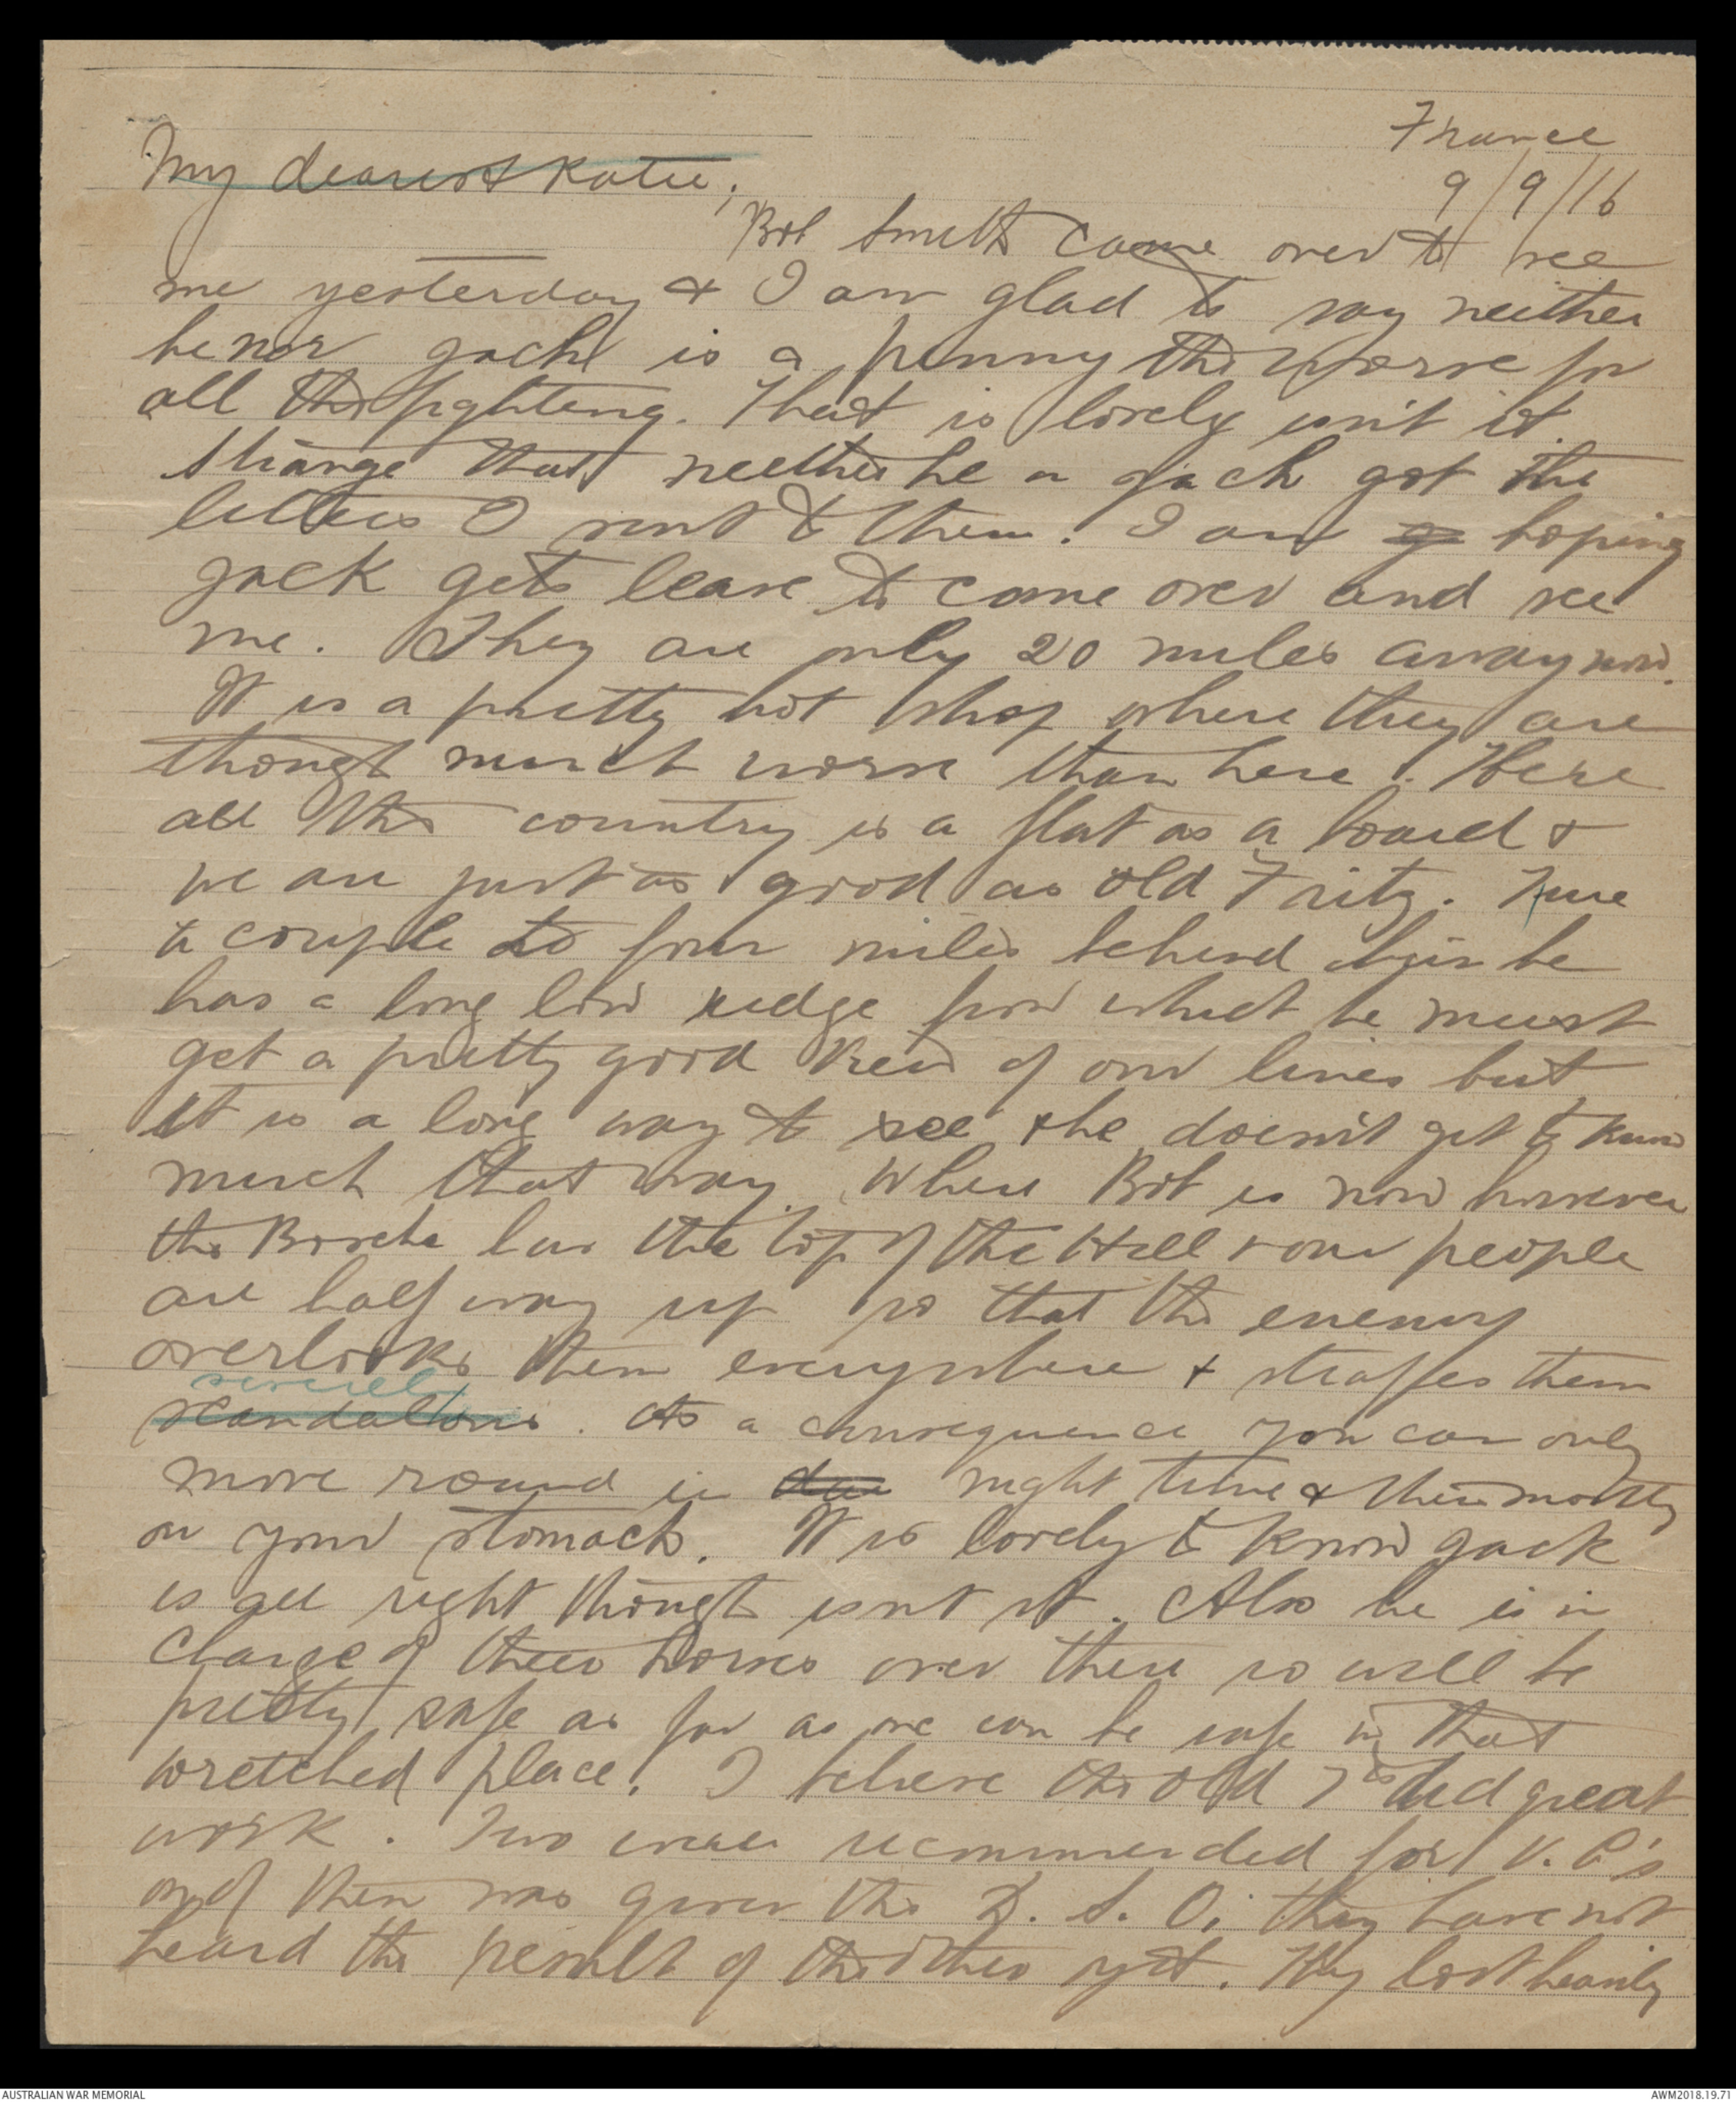 France
9/9/16
My dearest Katie,
Bob Smith came over to see
me yesterday & I am glad to say neither
he nor Jack is a penny the worse for
all the fighting. That is lovely isn't it.
Strange that neither he or Jack got the
letters I sent to them. I am hoping
Jack gets leave to come over and see
me. They are only 20 miles away now.
It is a pretty hot shop where they are
though much worse than here. Here
all the country is a flat as a board &
we are just as good as old Fritz. True
a couple to four miles behind him he
has a long low ridge from which he must
get a pretty good view of our lines but
it is a long way to see & he doesn't get to know
much that way. Where Bob is now however
the Bosche has the top of the Hill & our people
are half way up so that the enemy
overlooks them everywhere & straffes them
severely
scandalous. As a consequence you can only
move round in day night time & then mostly
on your stomach. It is lovely to know Jack
is all right though isn't it. Also he is in
charge of their horses over there so will be
pretty safe as far as one can be safe in that
wretched place. I believe the old 7th did great
work. Two were recommended for V.C's
one of them was given the D.S.O; they have not
heard the result of the other yet. They lost heavily
AUSTRALIAN WAR MEMORIAL
AWM2018.19.71